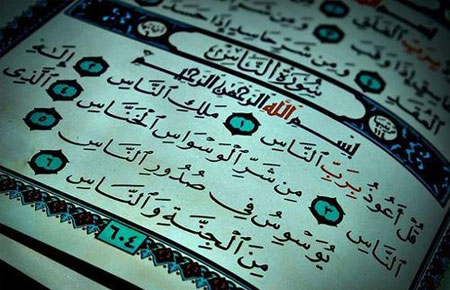 بِرَبِّ ٱلْفَلَقِ
إِذَا وَقَبَ ٣ وَمِن شَرِّ
ٱلْعُقَدِ ٤ وَمِن شَرِّ حَاسِدٍ إِذَا حَسَدَ
سُورَةُ ٱلنَّاسِ
بِسْمِ ٱللَّهِ ٱلرَّحْمَٰنِ ٱلرَّحِيمِ
قُلْ أَعُوذُ بِرَبِّ ٱلنَّاسِ ١ مَلِكِ ٱلنَّاسِ ٢ إِلَٰهِ
ٱلنَّاسِ ٣ مِن شَرِّ ٱلْوَسْوَاسِ ٱلْخَنَّاسِ ٤ ٱلَّذِى
يُوَسْوِسُ فِى صُدُورِ ٱلنَّاسِ ٥
مِنَ ٱلْجِنَّةِ وَٱلنَّاسِ ٦
٦٠٤